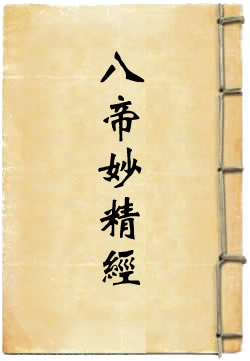 八帝妙精經